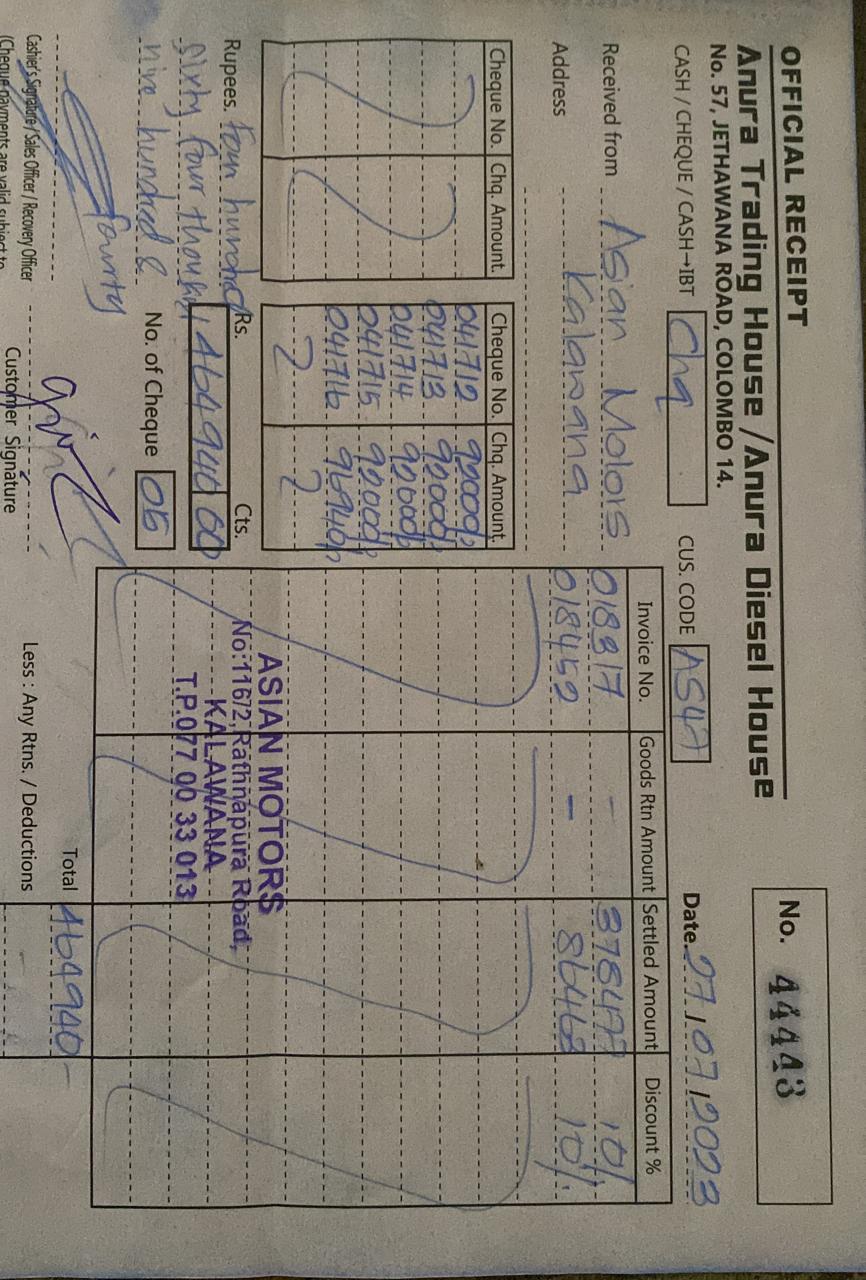 OFFICIAL RECEIPT
No. 44443
Anura Trading House / Anura Diesel House
No. 57, JETHAWANA ROAD, COLOMBO 14.
CASH / CHEQUE / CASH→IBT Chq CUS. CODE AS47 Date. 27/07/2023
Received from Asian Motors
Address Kalawana
Cheque No. Chq. Amount. Cheque No. Chq. Amount.
041712 92000/=
041713 92000/=
041714 92000/=
041715 92000/=
041716 96940/=
Rs. Cts.
464940 00
Rupees. Four hundred
sixty four thousand
nine hundred &
fourty
No. of Cheque 05
Invoice No. Goods Rtn Amount Settled Amount Discount %
018817 - 378477 10%
018452 - 86463 10%
ASIAN MOTORS
No:116/2, Rathnapura Road,
KALAWANA
T.P.077 00 33 013
Total 464940-
Less : Any Rtns. / Deductions
Cashier's Signature / Sales Officer / Recovery Officer
Customer Signature
(Cheque payments are valid subject to